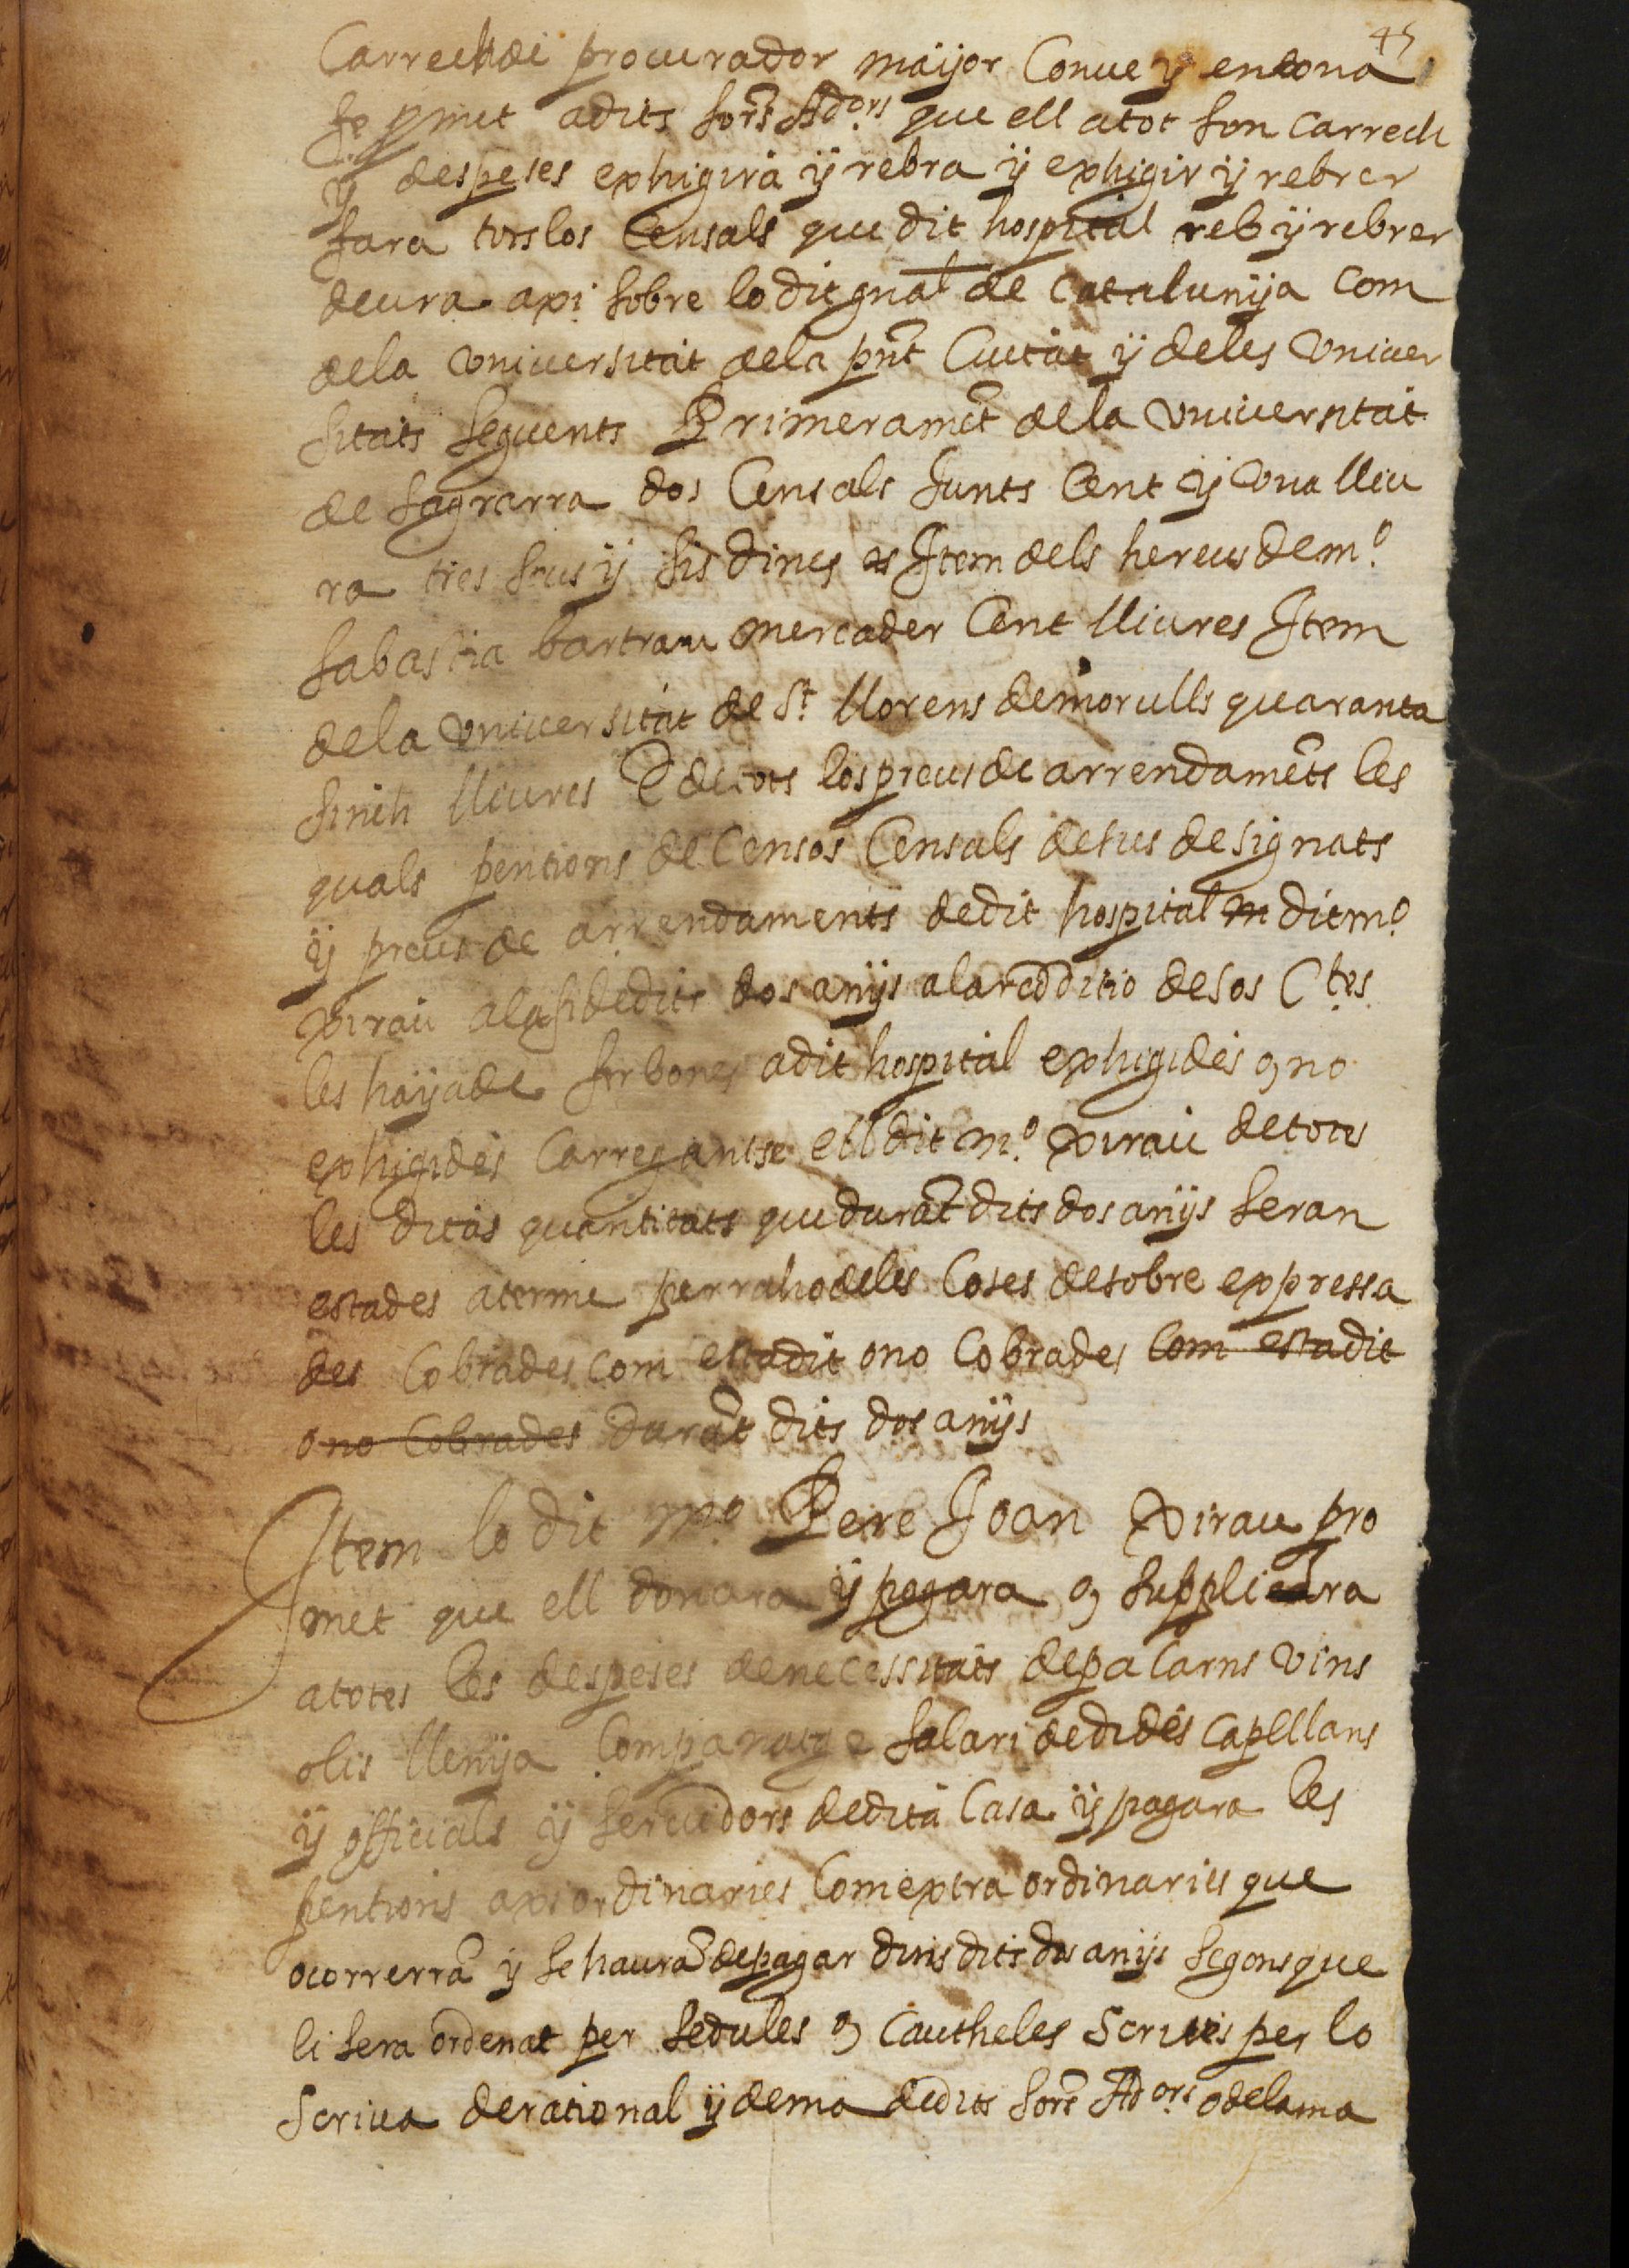 45
Carrech de procurador maijor Conue y en bona
fe pmet adits sors Ad.ors que ell atot son carrech
ÿ despeses exhigira ÿ rebra ÿ exhigir ÿ rebrer
fara tots los Censals que dit hospital reb ÿ rebrer
deura axi sobre lo dit gnal de Catalunÿa Com
dela vniuersitat dela pnt Ciutat ÿ deles vniuer
sitats seguents Primeramet dela vniuersitat
de sagrarra dos Censals Junts Cent ÿ vna lliu
ra tres sous ÿ sis dines Item dels hereus de m.o
sabastia bartrau mercader Cent lliures Item
dela vniuersitat de St llorens demorulls quaranta
sinch lliures E de tots los preus de arrendamets les
quals pentions de Censos Censals desus designats
ÿ preus de arrendaments dedit hospital dit m.o
Xirau ala fi dedits dos anÿs ala redditio de sos Ctes
les haÿa de fer bones adit hospital exhigides o no
exhigides Carregantse ell dit m.o Xirau de totes
les ditas quantitats que durat dits dos anÿs seran
estades a terme per raho deles Coses desobre expressa
des Cobrades com esta dit o no Cobrades com esta dit
o no Cobrades durat dits dos anÿs
Item lo dit m.o Pere Joan Xirau pro
met que ell donara ÿ pagara o supplira
a totes les despeses de necessitats de pa Carns vins
olis llenÿa Companatge salari de dides capellans
ÿ officials ÿ seruidors dedita Casa ÿ pagara les
pentions axi ordinaries Com extra ordinaries que
ocorrerra ÿ se haura de pagar dins dits dos anÿs segons que
li sera ordenat per sedules o Cautheles Scrites per lo
Scriua de rational ÿ de ma dedits sors Ad.ors o dela ma